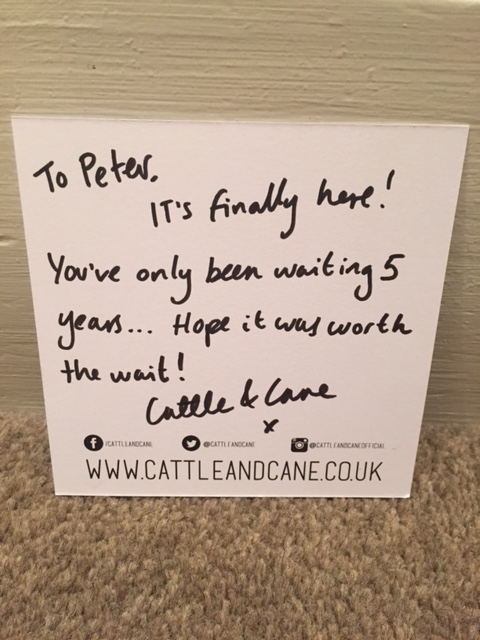 To Peter,
IT's finally here!
You've only been waiting 5
years... Hope it was worth
the wait!
Cattle & Cane
x
/CATTLEANDCANE @CATTLEANDCANE @CATTLEANDCANEOFFICIAL
WWW.CATTLEANDCANE.CO.UK